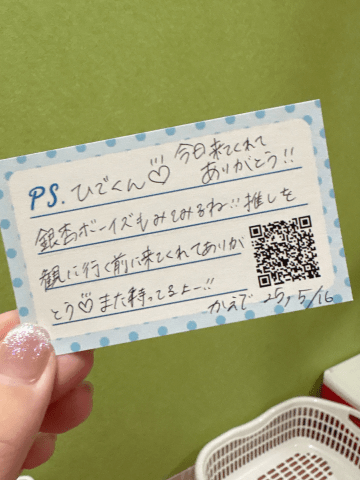 PS. ひでくん♡ 今日来てくれて
ありがとう!!
銀杏ボーイズもみてみるね!! 推しを
観に行く前に来てくれてありが
とう♡また待ってるよー!!
かえで 25, 5/16